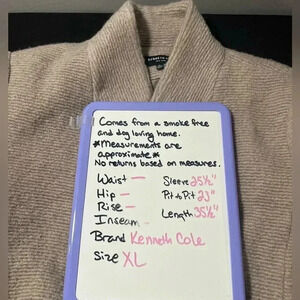 KENNETH
Comes from a smoke free
and dog loving home.
*Measurements are
approximate*
No returns based on measures.
Waist — Sleeve 25½"
Hip — Pit to Pit 23"
Rise — Length 35½"
Inseam —
Brand Kenneth Cole
Size XL